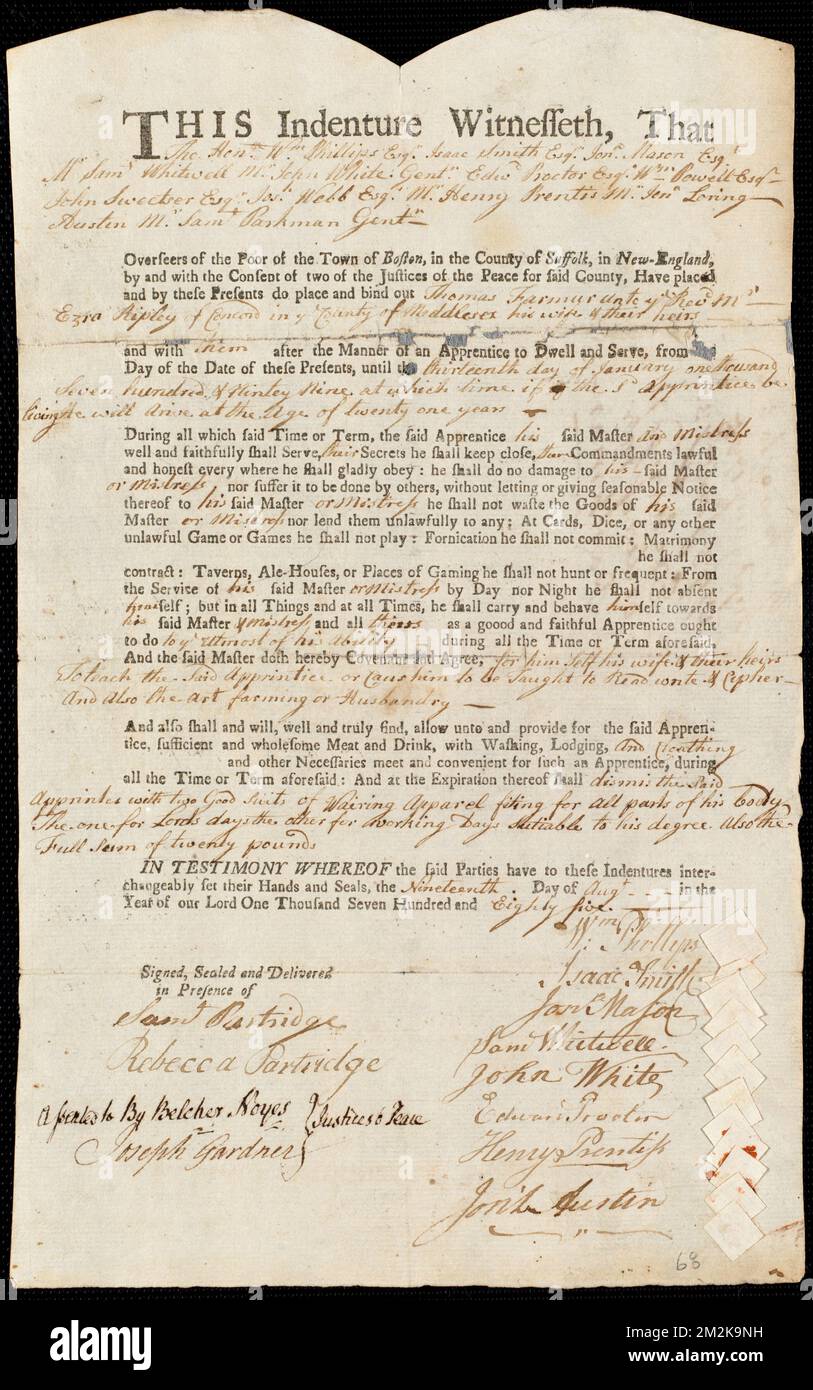 THIS Indenture Witnesseth, That
The Honble Wm Phillips Esqr Isaac Smith Esqr Jonn Mason Esqr
Mr Saml Whitwell Mr John White Gentn Edwd Proctor Esqr Wm Powell Esqr
John Sweetser Esqr Josh Webb Esqr Mr Henry Prentis Mr Jonn Loring
Austin Mr Saml Parkman Gentn
Overseers of the Poor of the Town of Boston, in the County of Suffolk, in New-England,
by and with the Consent of two of the Justices of the Peace for said County, Have placed
and by these Presents do place and bind out Thomas Farmur unto ye Revd Mr
Ezra Ripley of Concord in ye County of Middlesex his wife & their heirs
and with them after the Manner of an Apprentice to Dwell and Serve, from the
Day of the Date of these Presents, until the thirteenth day of January one thousand
Seven hundred & Ninley Nine at which time if the Sd Apprentice be
living he will arive at the Age of twenty one years
During all which said Time or Term, the said Apprentice his said Master and Mistress
well and faithfully shall Serve, their Secrets he shall keep close, their Commandments lawful
and honest every where he shall gladly obey: he shall do no damage to his said Master
or Mistress, nor suffer it to be done by others, without letting or giving seasonable Notice
thereof to his said Master or Mistress he shall not waste the Goods of his said
Master or Mistress nor lend them unlawfully to any: At Cards, Dice, or any other
unlawful Game or Games he shall not play: Fornication he shall not commit: Matrimony
he shall not
contract: Taverns, Ale-Houses, or Places of Gaming he shall not hunt or frequent: From
the Service of his said Master or Mistress by Day nor Night he shall not absent
himself; but in all Things and at all Times, he shall carry and behave himself towards
his said Master & Mistress, and all theirs as a goood and faithful Apprentice ought
to do to ye utmost of his ability during all the Time or Term aforesaid,
And the said Master doth hereby Covenant and Agree, for him Self his wife & their heirs
To teach the Said Apprentice or Caus him to be Taught to Read write & Cipher
And Also the art farming or Husbandry
And also shall and will, well and truly find, allow unto and provide for the said Appren-
tice, sufficient and wholesome Meat and Drink, with Washing, Lodging, and Cloathing
and other Necessaries meet and convenient for such an Apprentice, during
all the Time or Term aforesaid: And at the Expiration thereof shall dismis the Said
Apprintes with two Good Suits of Wairing Apparel fiting for all parts of his body
The one for Lords days the other for Working Days Sutiable to his degree Also the
Full Sum of twenty pounds
IN TESTIMONY WHEREOF the said Parties have to these Indentures inter-
changeably set their Hands and Seals, the Nineteenth. Day of Augt in the
Year of our Lord One Thousand Seven Hundred and Eighty five.
Wm Phillips
Signed, Sealed and Delivered
Isaac Smith
in Presence of
Jonn Mason
Saml Partridge
Saml Whitwell
Rebecca Partridge
John White
Assented to By Belcher Noyes } Justices o Peace
Edward Proctor
Joseph Gardner
Henry Prentiss
Jon.L. Austin
68
alamy
Image ID: 2M2K9NH
www.alamy.com